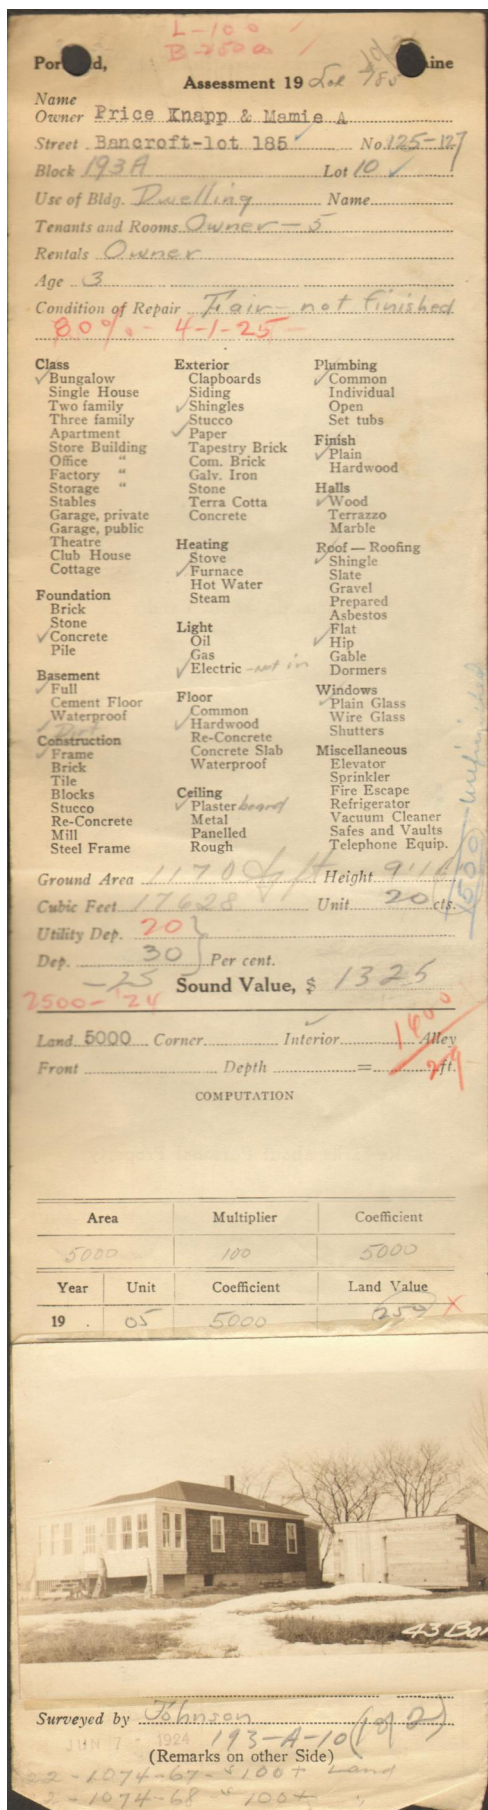 L-100
B-2500
Portland, Maine
Assessment 19 Lot 185
Name
Owner Price Knapp & Mamie A
Street Bancroft-lot 185 No. 125-127
Block 193A Lot 10
Use of Bldg. Dwelling Name
Tenants and Rooms Owner - 5
Rentals Owner
Age 3
Condition of Repair Fair - not finished
80% - 4-1-25-
Class
Bungalow
Single House
Two family
Three family
Apartment
Store Building
Office "
Factory "
Storage "
Stables
Garage, private
Garage, public
Theatre
Club House
Cottage
Foundation
Brick
Stone
Concrete
Pile
Basement
Full
Cement Floor
Waterproof
Dirt
Construction
Frame
Brick
Tile
Blocks
Stucco
Re-Concrete
Mill
Steel Frame
Exterior
Clapboards
Siding
Shingles
Stucco
Paper
Tapestry Brick
Com. Brick
Galv. Iron
Stone
Terra Cotta
Concrete
Heating
Stove
Furnace
Hot Water
Steam
Light
Oil
Gas
Electric - not in
Floor
Common
Hardwood
Re-Concrete
Concrete Slab
Waterproof
Ceiling
Plaster board
Metal
Panelled
Rough
Plumbing
Common
Individual
Open
Set tubs
Finish
Plain
Hardwood
Halls
Wood
Terrazzo
Marble
Roof — Roofing
Shingle
Slate
Gravel
Prepared
Asbestos
Flat
Hip
Gable
Dormers
Windows
Plain Glass
Wire Glass
Shutters
Miscellaneous
Elevator
Sprinkler
Fire Escape
Refrigerator
Vacuum Cleaner
Safes and Vaults
Telephone Equip.
1500 - unfinished
Ground Area 1170 sq ft Height
Cubic Feet 17628 Unit 20 cts.
Utility Dep. 20
Dep. 30 Per cent.
-25 Sound Value, $ 1325
2500- '24
1400
29
Land 5000 Corner Interior Alley
Front Depth = ft.
COMPUTATION
Area Multiplier Coefficient
5000 100 5000
Year Unit Coefficient Land Value
19 . 05 5000 250 X
43 Ban
Surveyed by Johnson
JUN 7 - 1924 193-A-10 (1 of 2)
(Remarks on other Side)
22-1074-67-$100+ Land
2-1074-68 $100+ "